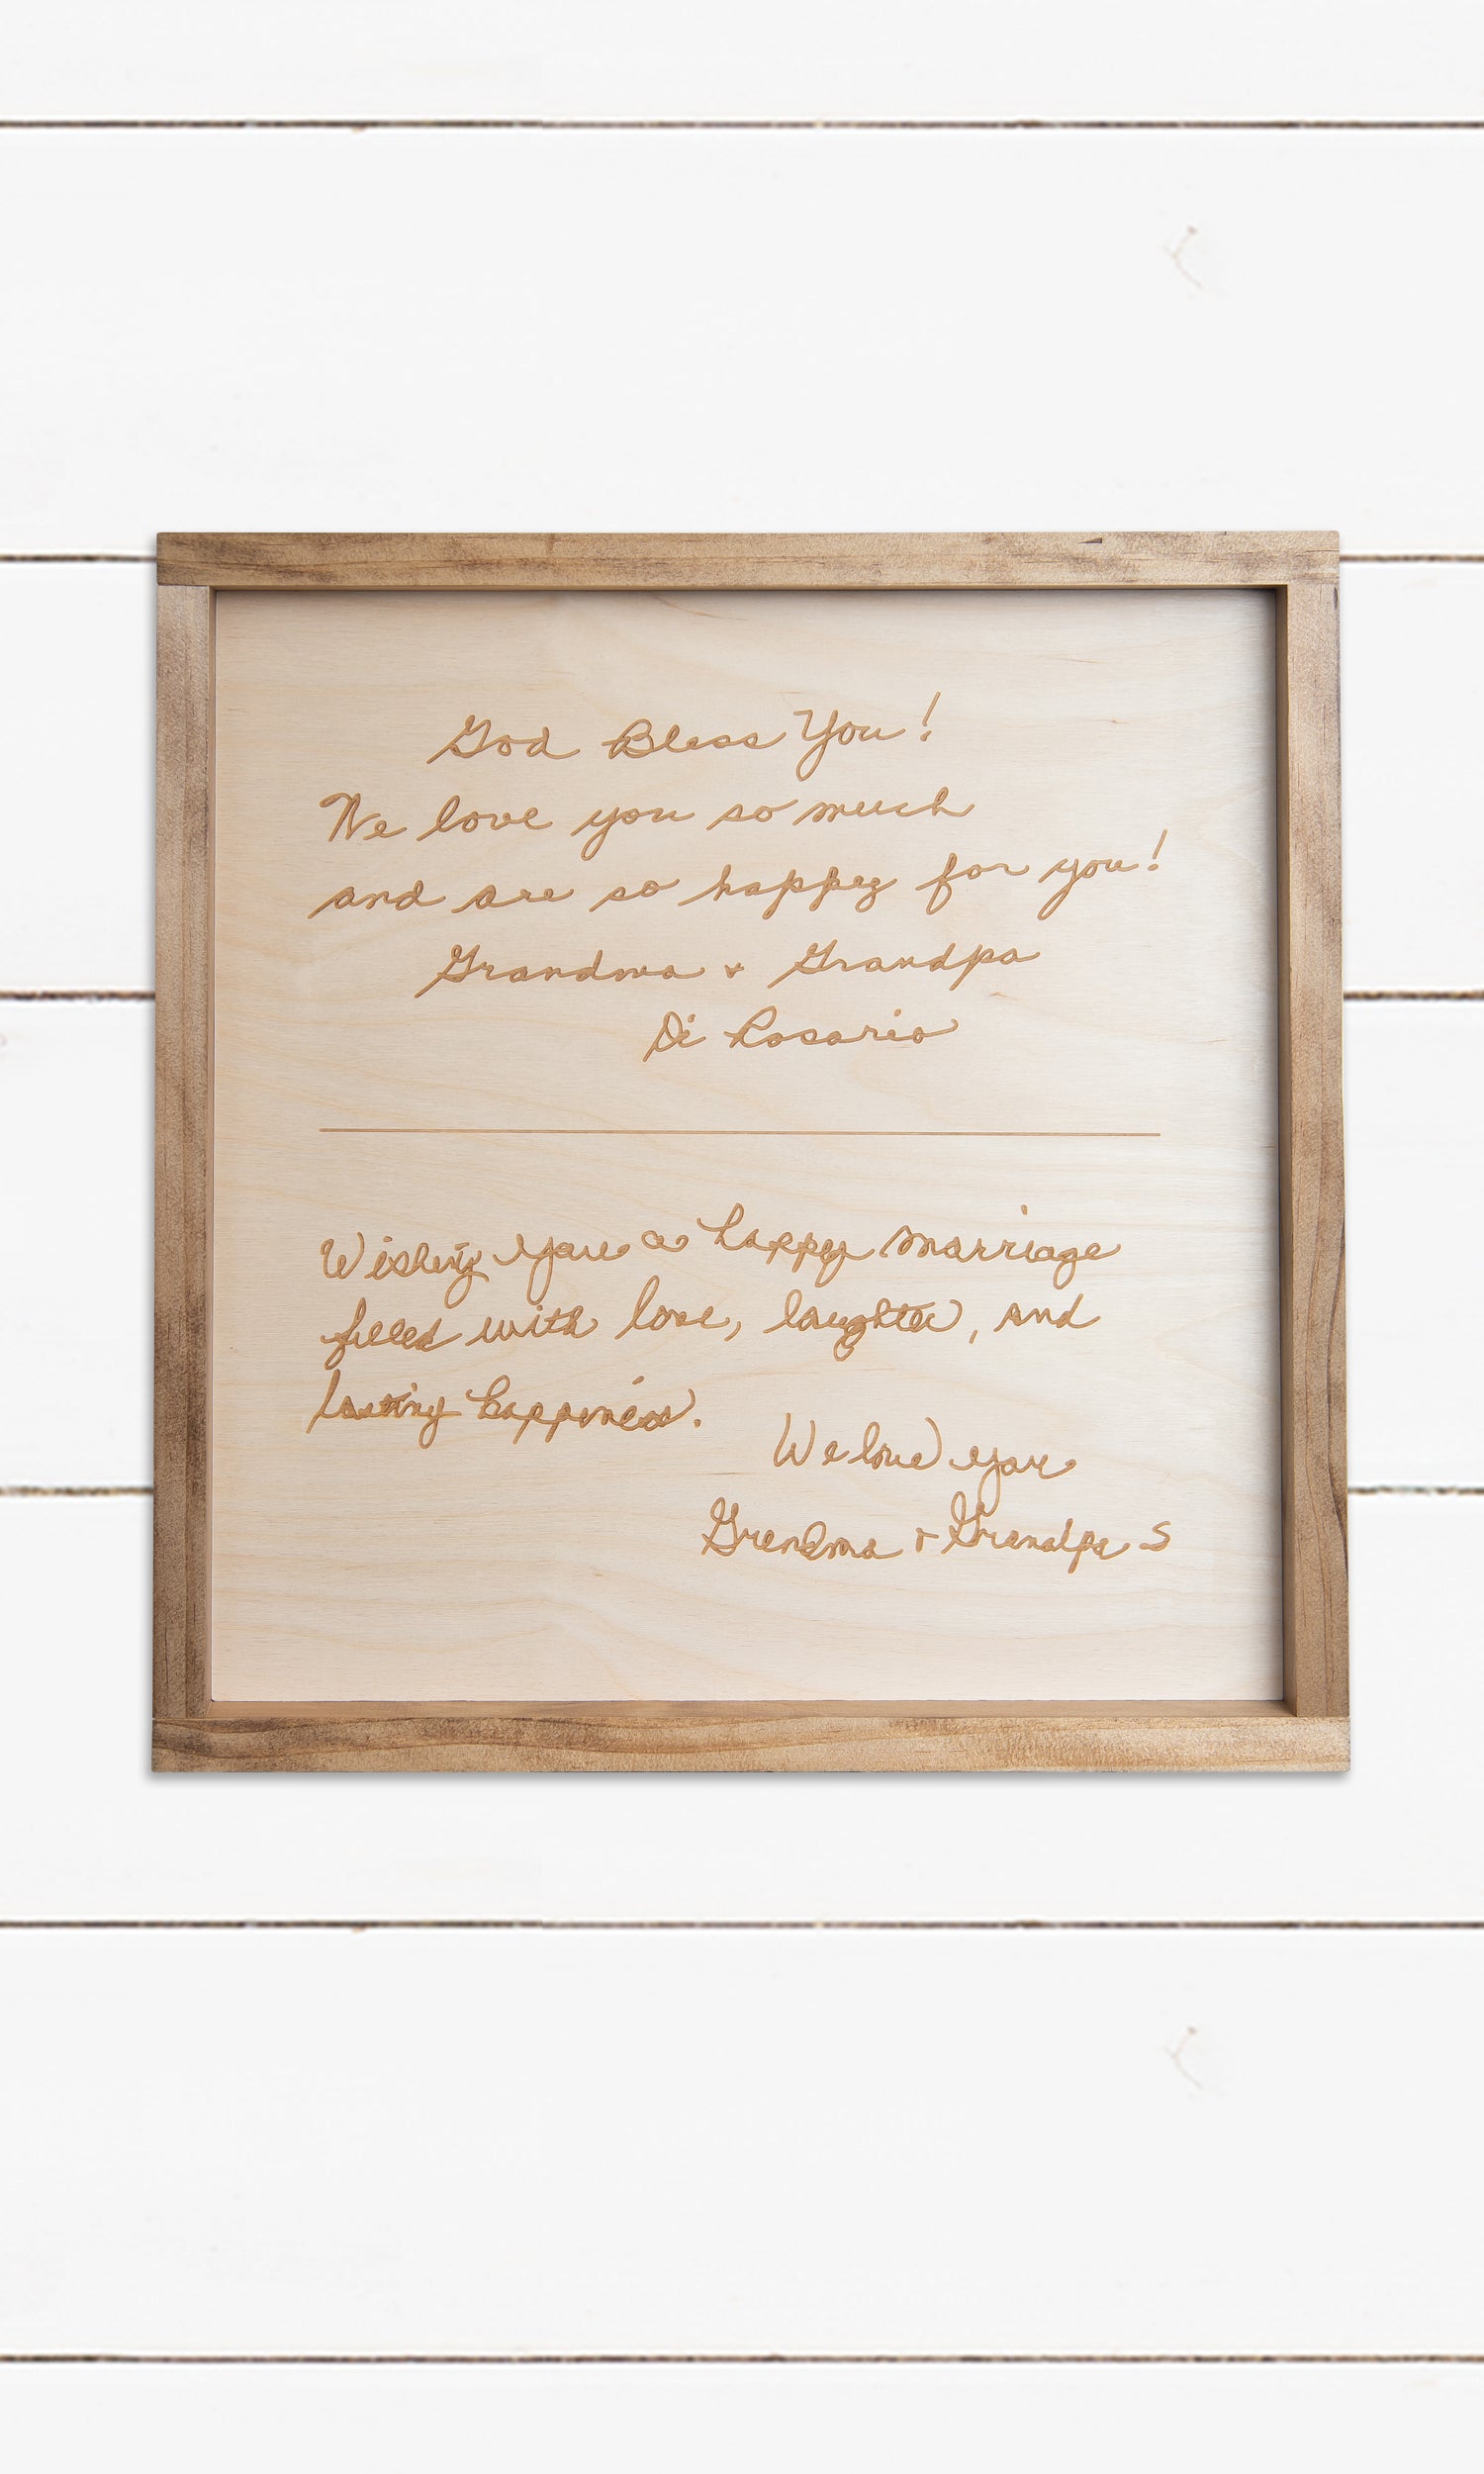 God Bless You!
We love you so much
and are so happy for you!
Grandma + Grandpa
Di Rosario
Wishing you a happy marriage
filled with love, laughter, and
lasting happiness.
We love you
Grandma + Grandpa S